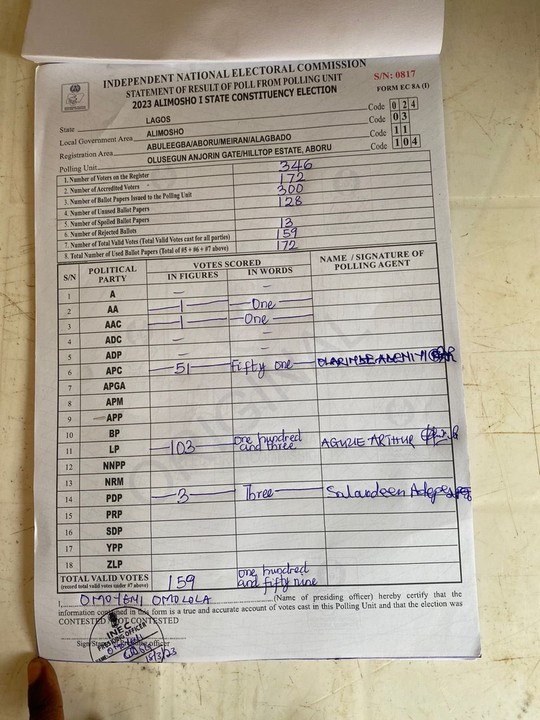 INDEPENDENT NATIONAL ELECTORAL COMMISSION
STATEMENT OF RESULT OF POLL FROM POLLING UNIT
S/N: 0817
2023 ALIMOSHO I STATE CONSTITUENCY ELECTION
FORM EC 8A (I)
State LAGOS Code 0 2 4
Local Government Area ALIMOSHO Code 0 3
Registration Area ABULEEGBA/ABORU/MEIRAN/ALAGBADO Code 1 1
Polling Unit OLUSEGUN ANJORIN GATE/HILLTOP ESTATE, ABORU Code 1 0 4
1. Number of Voters on the Register 346
2. Number of Accredited Voters 172
3. Number of Ballot Papers Issued to the Polling Unit 300
4. Number of Unused Ballot Papers 128
5. Number of Spoiled Ballot Papers
6. Number of Rejected Ballots 13
7. Number of Total Valid Votes (Total Valid Votes cast for all parties) 159
8. Total Number of Used Ballot Papers (Total of #5 + #6 + #7 above) 172
S/N POLITICAL PARTY VOTES SCORED NAME / SIGNATURE OF POLLING AGENT
IN FIGURES IN WORDS
1 A – –
2 AA 1 One
3 AAC 1 One
4 ADC – –
5 ADP – –
6 APC 51 Fifty one
7 APGA
8 APM
9 APP
10 BP
11 LP 103 One hundred and three AGUZIE ARTHUR
12 NNPP
13 NRM
14 PDP 3 Three
15 PRP
16 SDP
17 YPP
18 ZLP
TOTAL VALID VOTES 159 one hundred and fifty nine
(record total valid votes under #7 above)
I, OMOTENI OMOLOLA (Name of presiding officer) hereby certify that the
information contained in this form is a true and accurate account of votes cast in this Polling Unit and that the election was
CONTESTED / NOT CONTESTED
INEC
PRESIDING OFFICER
18/3/23
ORIGINAL